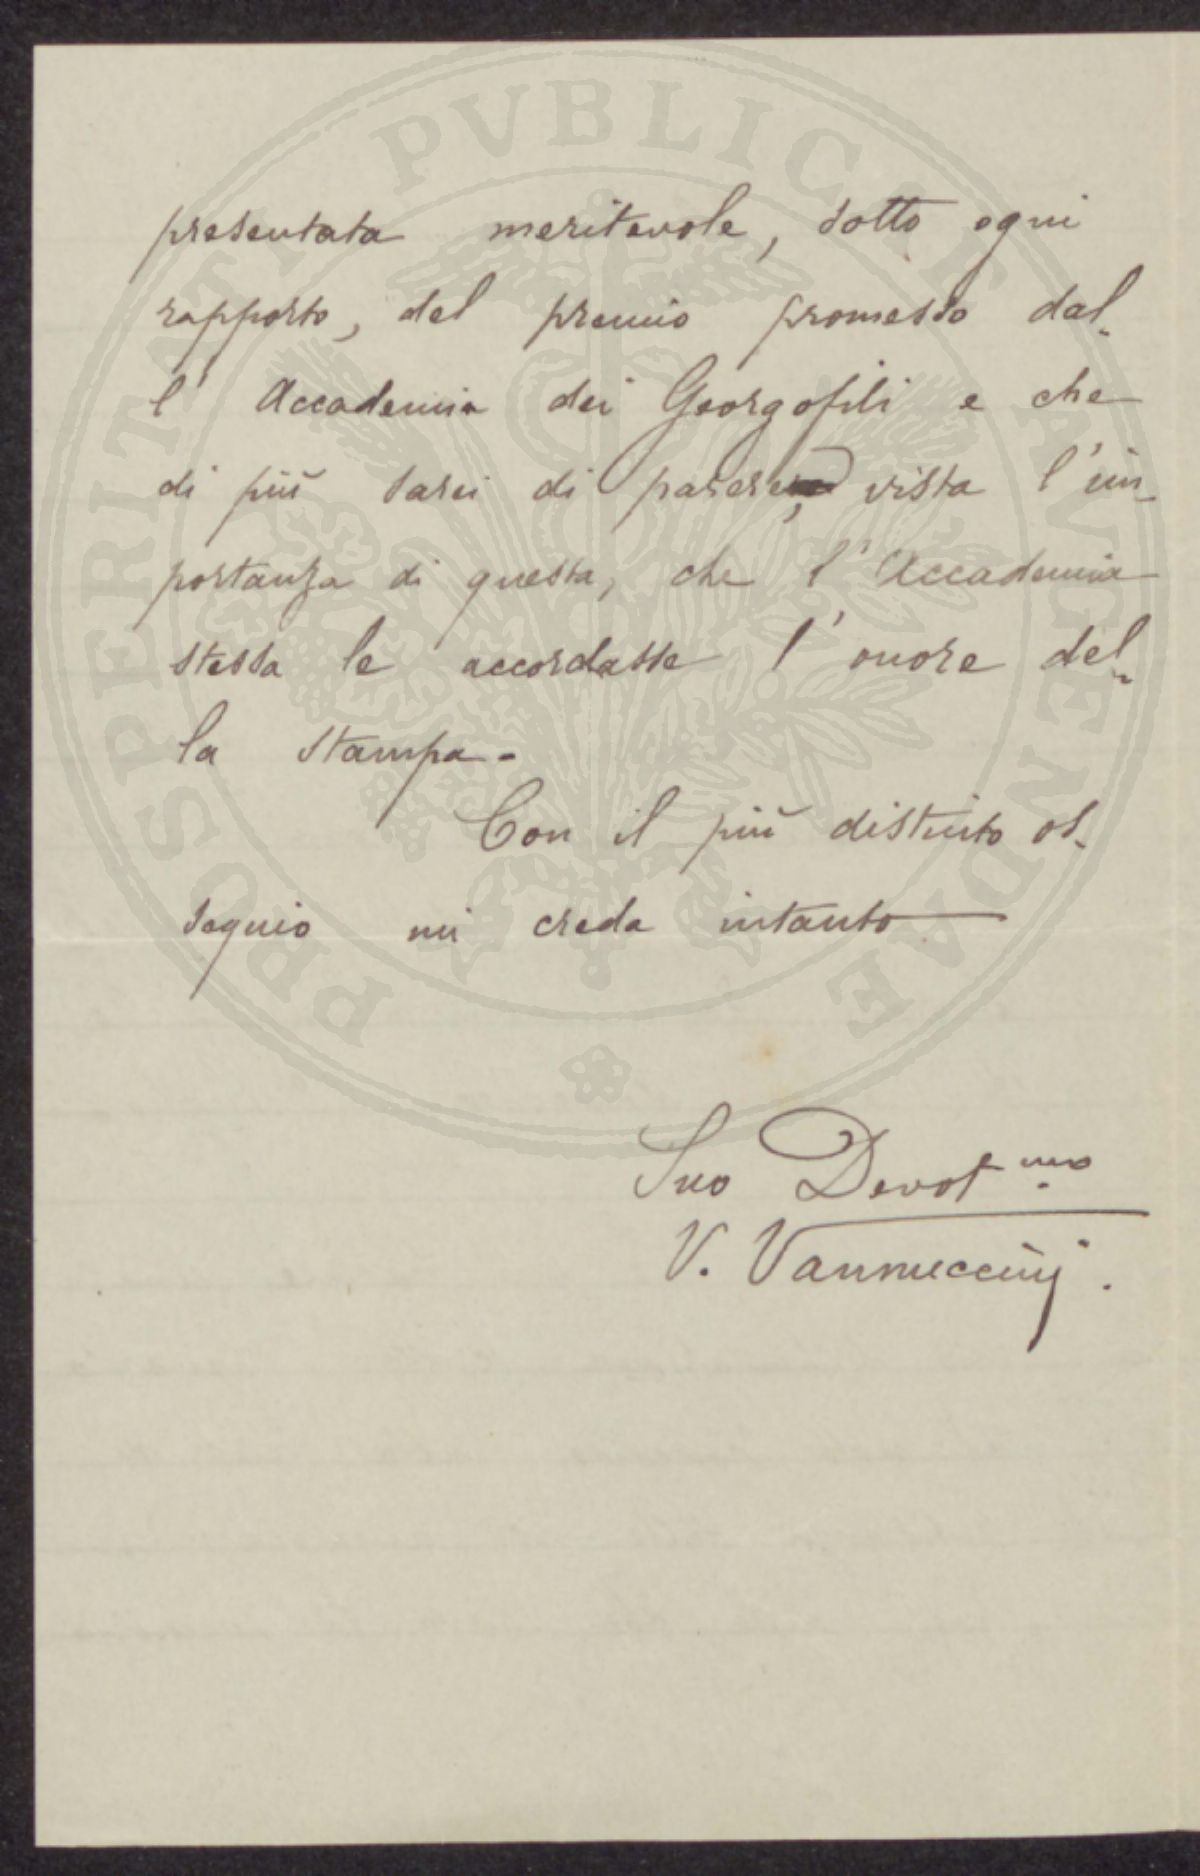 presentata meritevole, sotto ogni
rapporto, del premio promesso dal-
l'Accademia dei Georgofili e che
di più sarei di parere, vista l'im-
portanza di questa, che l'Accademia
stessa le accordasse l'onore del-
la stampa.
Con il più distinto os-
sequio mi creda intanto
Suo Devot.mo
V. Vannuccini.
PROSPERITATI PVBLICAE AVGENDAE